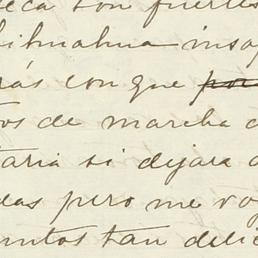 eca son fuertes
hihuahua insa
rás con que
os de marcha
taria si dejara
das pero me vo
untos tan delic